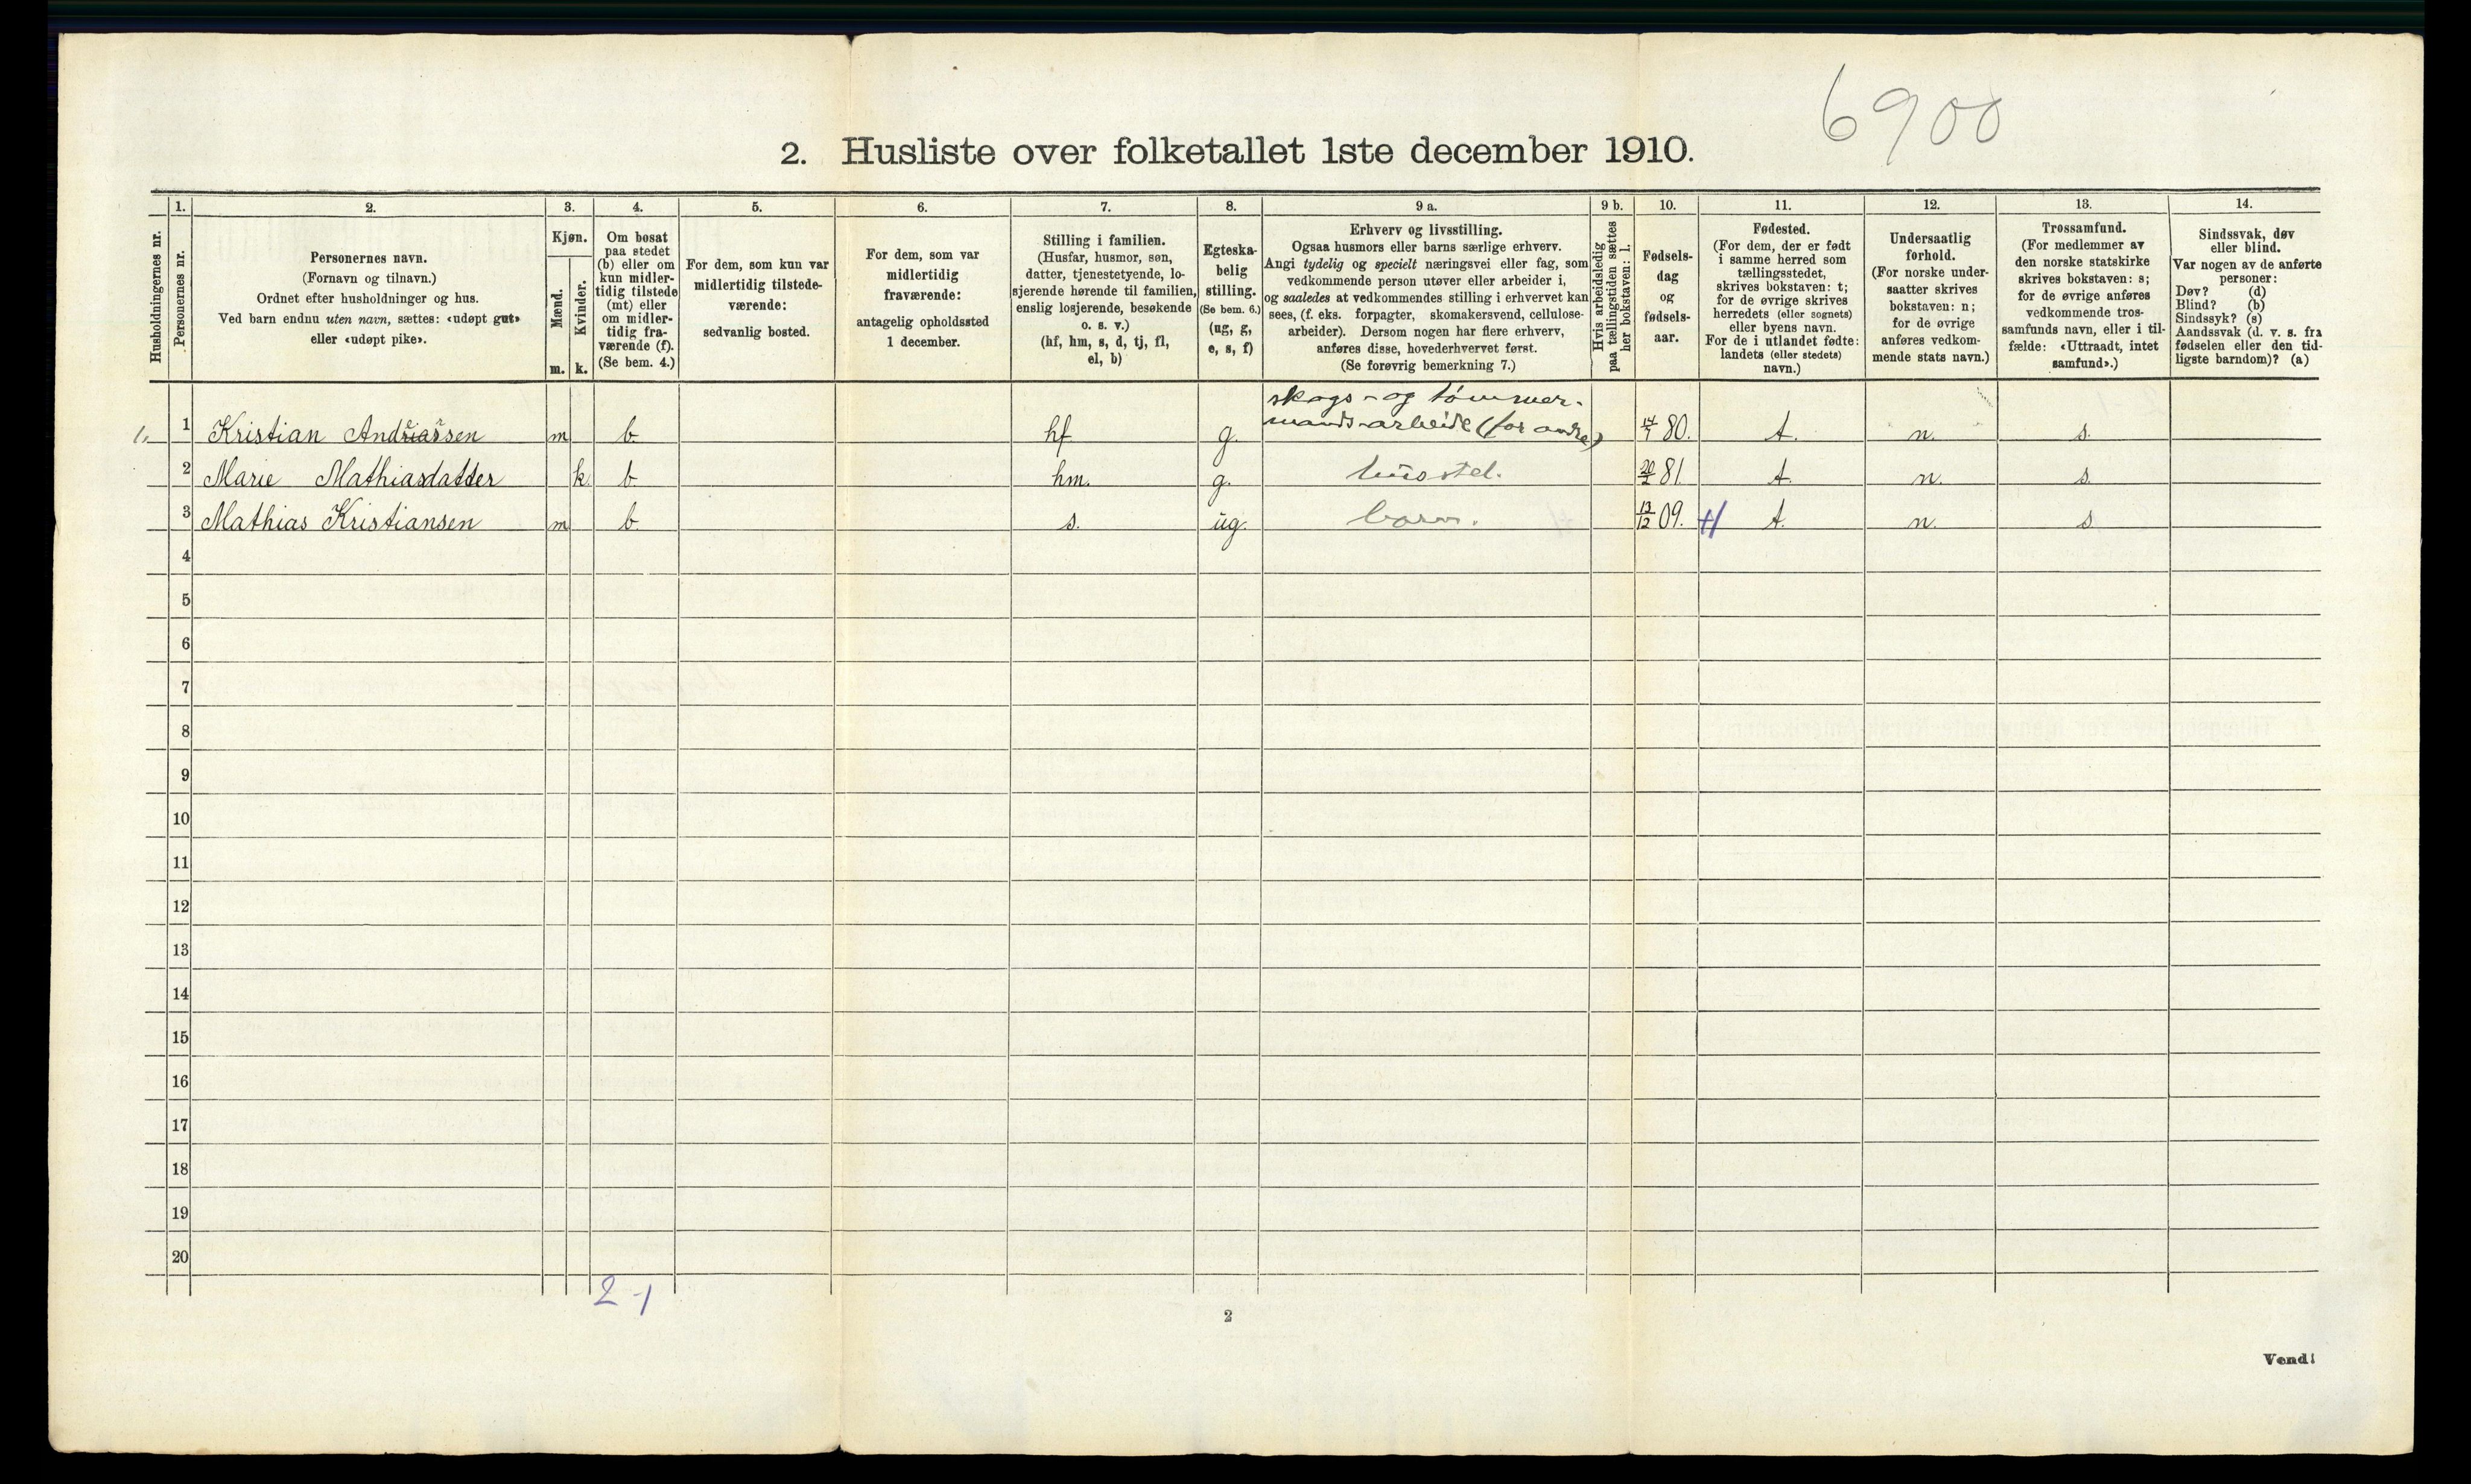 6900
2. Husliste over folketallet 1ste december 1910.
Husholdningernes nr.
1.
Personernes nr.
2.
Personernes navn.
(Fornavn og tilnavn.)
Ordnet efter husholdninger og hus.
Ved barn endnu uten navn, sættes: «udøpt gut»
eller «udøpt pike».
3.
Kjøn.
Mænd.
Kvinder.
m. k.
4.
Om bosat
paa stedet
(b) eller om
kun midler-
tidig tilstede
(mt) eller
om midler-
tidig fra-
værende (f).
(Se bem. 4.)
5.
For dem, som kun var
midlertidig tilstede-
værende:
sedvanlig bosted.
6.
For dem, som var
midlertidig
fraværende:
antagelig opholdssted
1 december.
7.
Stilling i familien.
(Husfar, husmor, søn,
datter, tjenestetyende, lo-
sjerende hørende til familien,
enslig losjerende, besøkende
o. s. v.)
(hf, hm, s, d, tj, fl,
el, b)
8.
Egteska-
belig
stilling.
(Se bem. 6.)
(ug, g,
e, s, f)
9 a.
Erhverv og livsstilling.
Ogsaa husmors eller barns særlige erhverv.
Angi tydelig og specielt næringsvei eller fag, som
vedkommende person utøver eller arbeider i,
og saaledes at vedkommendes stilling i erhvervet kan
sees, (f. eks. forpagter, skomakersvend, cellulose-
arbeider). Dersom nogen har flere erhverv,
anføres disse, hovederhvervet først.
(Se forøvrig bemerkning 7.)
9 b.
Hvis arbeidsledig
paa tællingstiden sættes
her bokstaven: l.
10.
Fødsels-
dag
og
fødsels-
aar.
11.
Fødested.
(For dem, der er født
i samme herred som
tællingsstedet,
skrives bokstaven: t;
for de øvrige skrives
herredets (eller sognets)
eller byens navn.
For de i utlandet fødte:
landets (eller stedets)
navn.)
12.
Undersaatlig
forhold.
(For norske under-
saatter skrives
bokstaven: n;
for de øvrige
anføres vedkom-
mende stats navn.)
13.
Trossamfund.
(For medlemmer av
den norske statskirke
skrives bokstaven: s;
for de øvrige anføres
vedkommende tros-
samfunds navn, eller i til-
fælde: «Uttraadt, intet
samfund».)
14.
Sindssvak, døv
eller blind.
Var nogen av de anførte
personer:
Døv? (d)
Blind? (b)
Sindssyk? (s)
Aandssvak (d. v. s. fra
fødselen eller den tid-
ligste barndom)? (a)
skogs- og tømmer-
1 Kristian m b. hf g. mands-arbeide (for andre) 80. t. n. s.
2 Marie Mathiasdatter k. b hm. g. husstel. 81. t. n. s.
3 Mathias Kristiansen m b. s. ug. barn. 13/12 09. t. n. s
4
5
6
7
8
9
10
11
12
13
14
15
16
17
18
19
20
2-1
2
Vend!